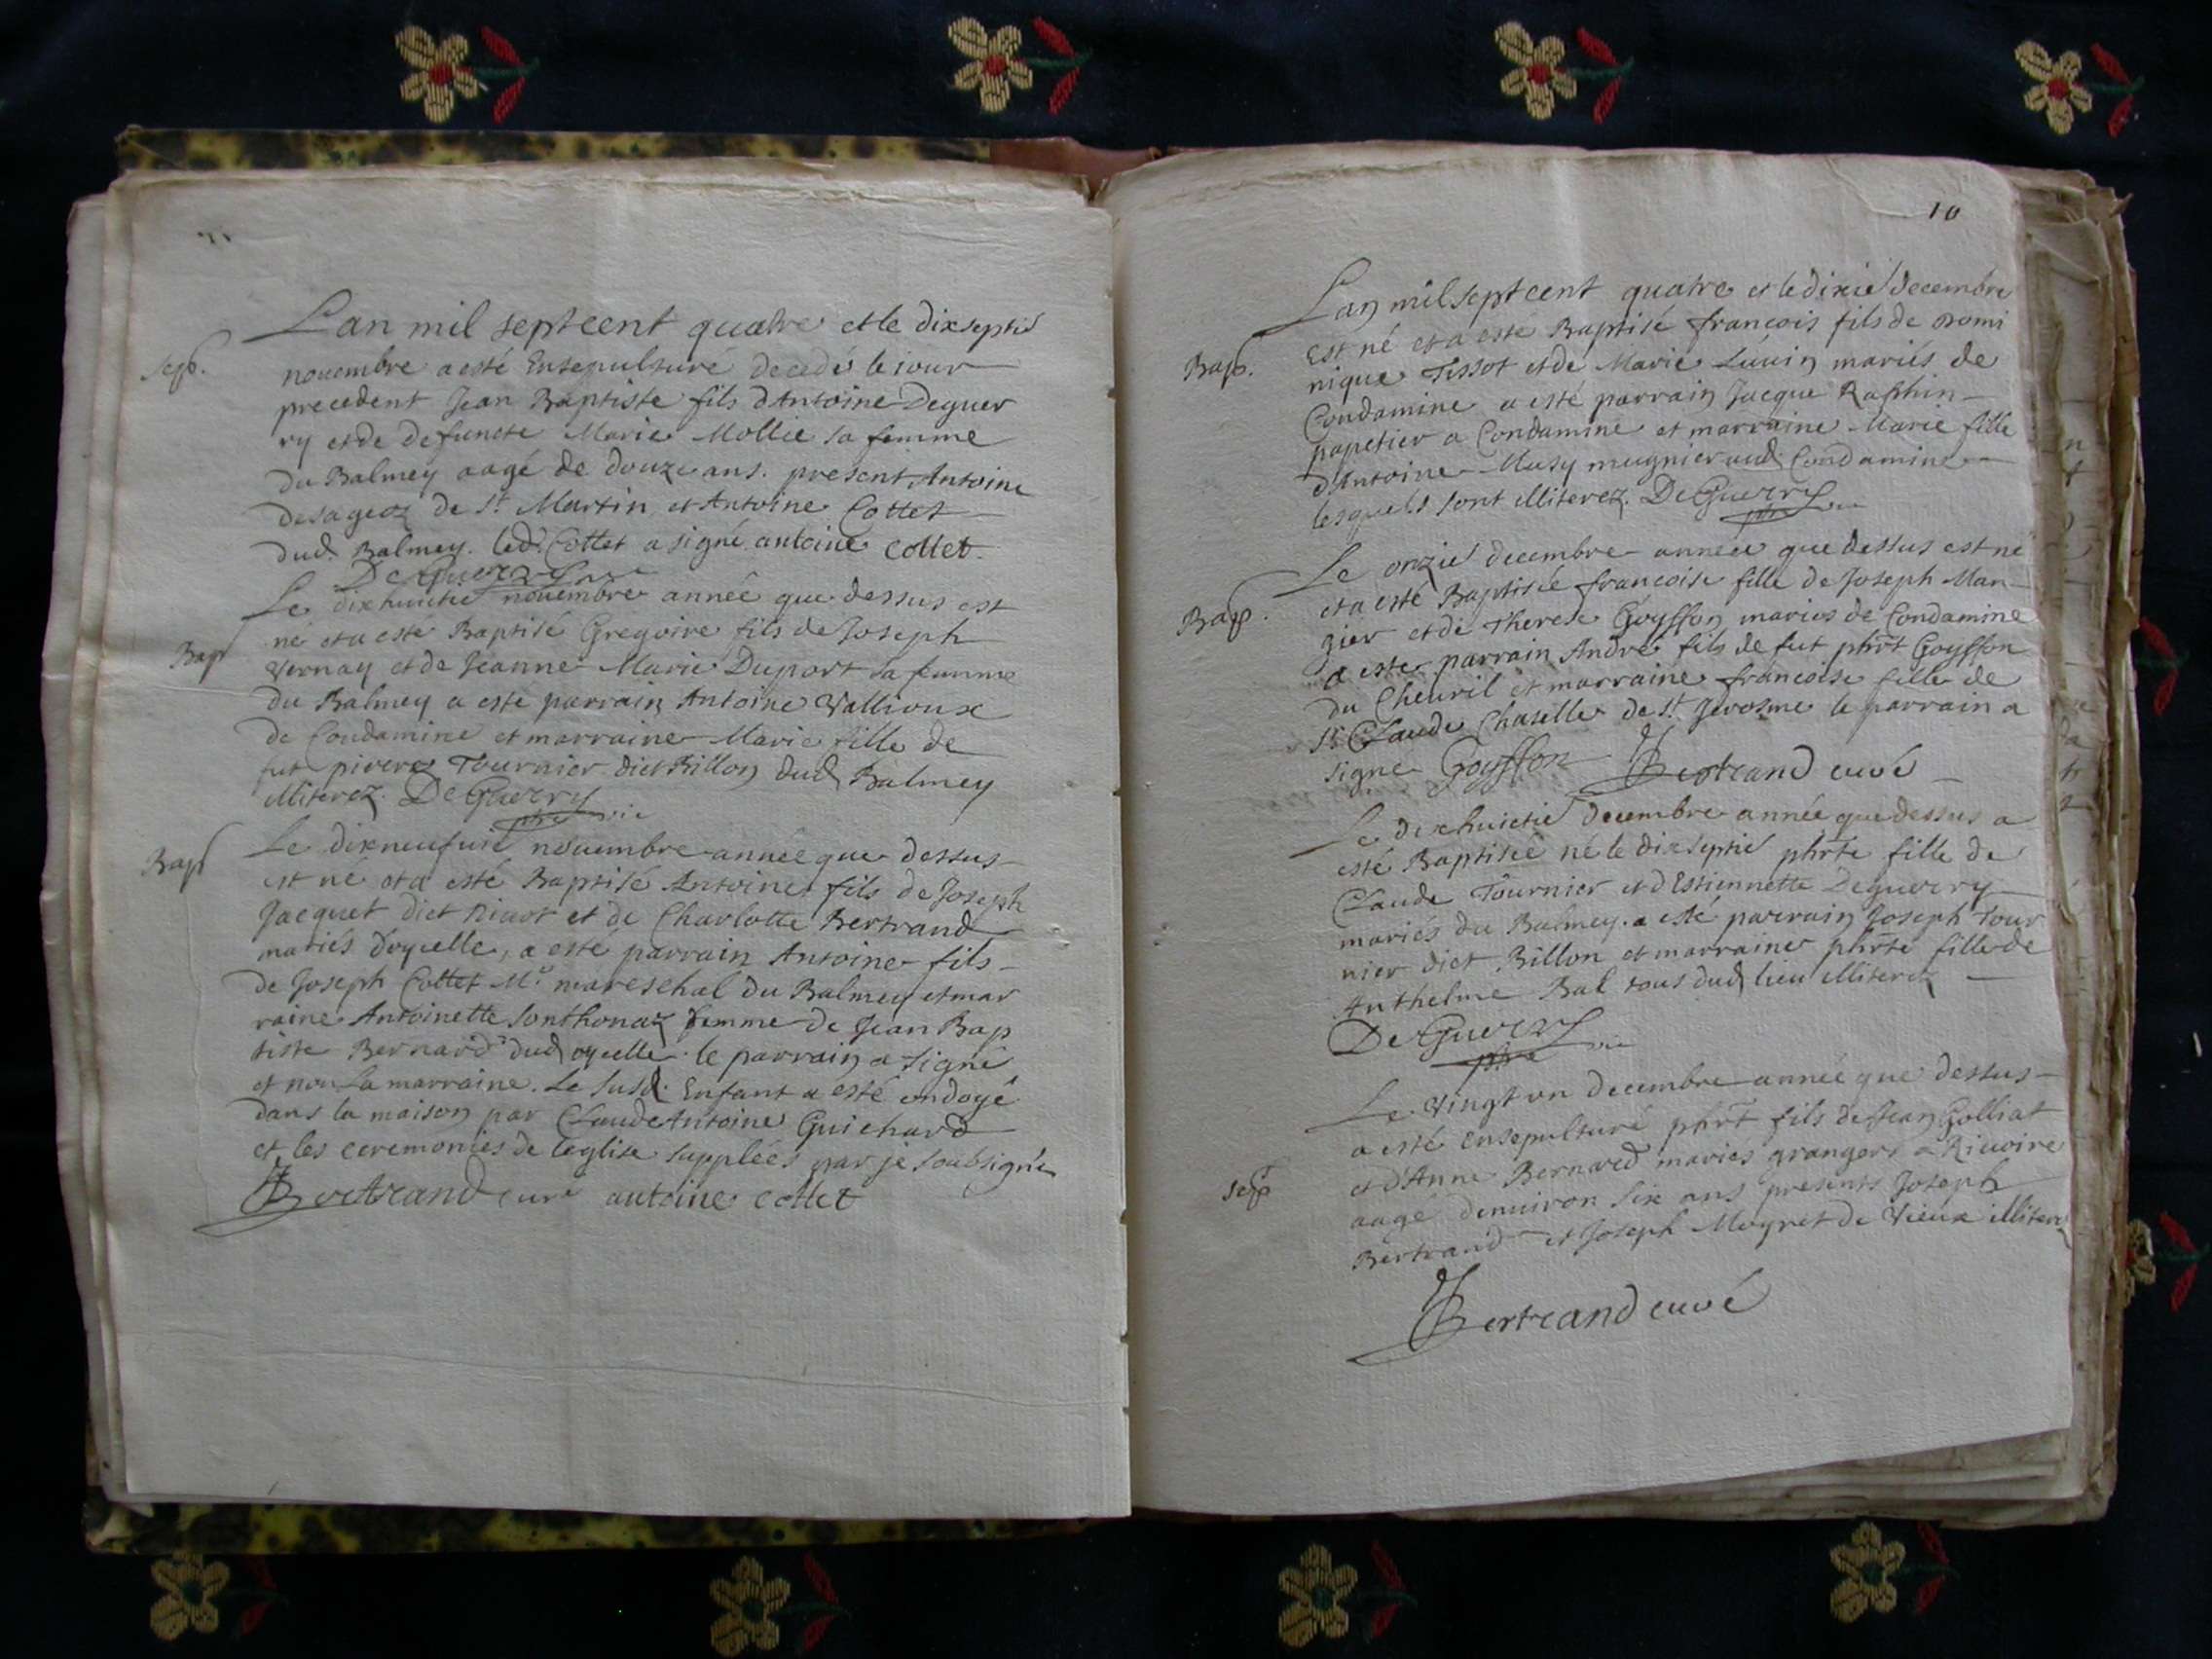 Lan mil septcent quatre et le dixseptie
sep. novembre a esté Ensepulture decedé le jour
precedent Jean Baptiste fils dAntoine Deguer
ry et de defuncte Marie Mollie sa femme
du Balmey aagé de douze ans. present Antoine
desageoz de St Martin et Antoine Cottet
dud Balmey. led. Cottet a signé antoine collet.
De Guerry vic
Le dixhuictie novembre année que dessus est
Bap né et a esté Baptisé Gregoire fils de Joseph
vernay et de Jeanne Marie Duport sa femme
du Balmey a esté parrain Antoine Vallioux
de Condamine et marraine Marie fille de
fut pierre Tournier dict Billon dud Balmey
illiterez. De Guerry
pbre vic
Bap Le dixneufuie novembre année que dessus
est né et a esté Baptisé Antoine fils de Joseph
Jacquet dict et de Charlotte Bertrand
mariés doyuelle, a esté parrain Antoine fils
de Joseph Cottet Mr mareschal du Balmey et mar
raine Antoinette Sonthonaz femme de Jean Bap
tiste Bernard dud oyuelle. le parrain a signé
et non la marraine. Le susd. Enfant a esté ondoyé
dans la maison par Claude Antoine Guichard
et les ceremonies de leglise supplées par je soubsigné
Bertrand curé antoine collet
10
Lan mil septcent quatre et le dixie decembre
Bap. Est né et a esté Baptisé francois fils de Domi
nique Tissot et de Marie Luuin mariés de
Condamine a esté parrain Jacque Raphin
papetier a Condamine et marraine Marie fille
dAntoine Musy mugnier aud. Condamine
lesquels sont illiterez. De Guerry
pbre vic
Le onzie decembre année que dessus est né
Bap. et a esté Baptisée francoise fille de Joseph Man
gier et de Therese Goyffon mariés de Condamine
a esté parrain André fils de fut phrt Goyffon
du Cheuril et marraine francoise fille de
Sr Claude Chaselle de St Jerosme le parrain a
signé Goyffon Bertrand curé
Le dixhuictie decembre année que dessus a
esté Baptisée né le dixseptie phrte fille de
Claude Tournier et dEstiennette Deguerry
mariés du Balmey. a esté parrain Joseph Tour
nier dict Billon et marraine phrte fille de
Anthelme Bal tous dud lieu illiterez
De Guerry
pbre vic
Le vingt un decembre année que dessus
a esté ensepulturé phrt fils de Jean Golliat
et d'Anne Bernard mariés grangers a Riuoire
sep aagé denuiron six ans presents Joseph
Bertrand et Joseph Moyret de Vieux illiterez
Bertrand curé